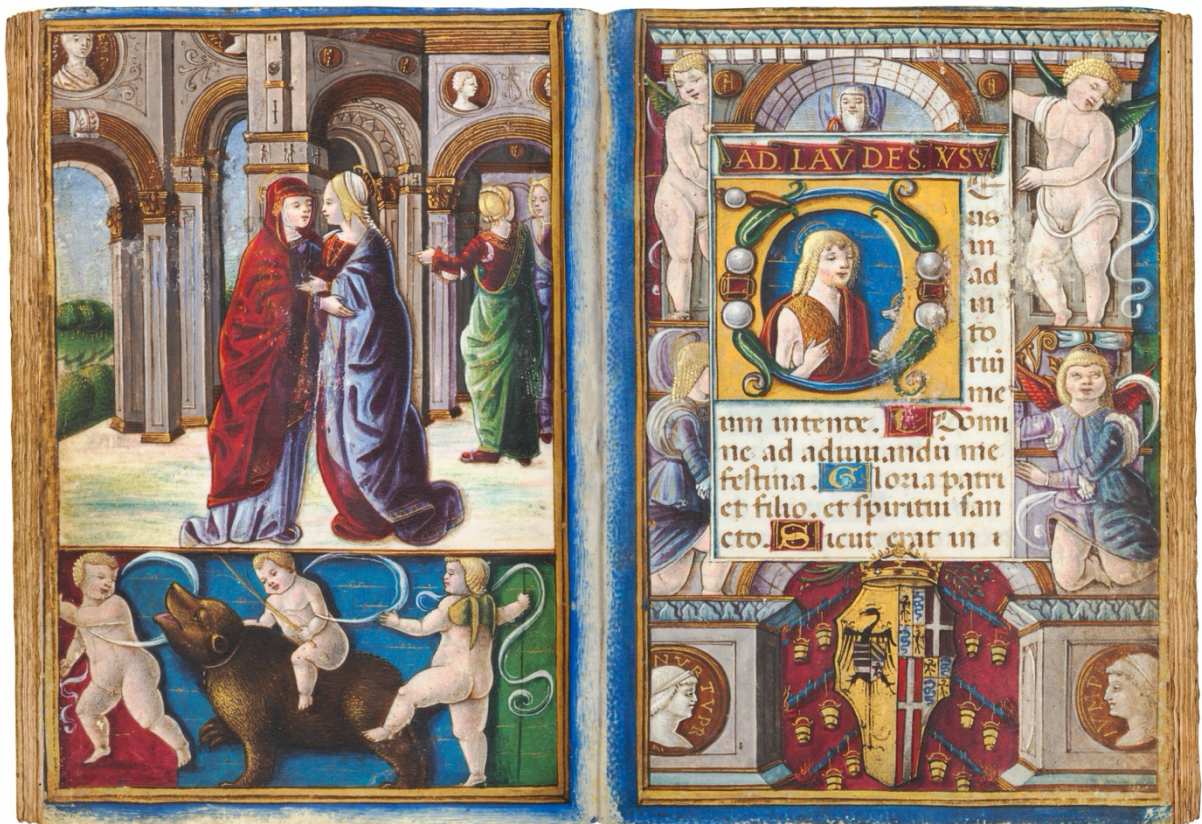 AD. LAV DES. VSV.
us
in
ad
in
to
rui
me
um intente. Domi
ne ad adiuuandū me
festina. Gloria patri
et filio. et spiritui san
cto. Sicut erat in